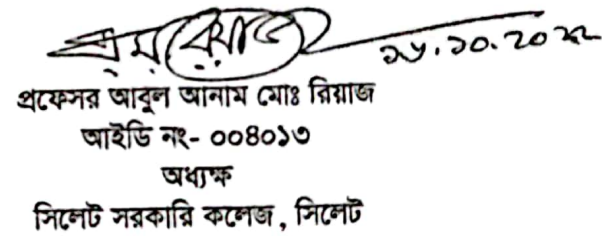 ২৫.১০.২০২২
প্রফেসর আবুল আনাম মোঃ রিয়াজ
আইডি নং- ০০৪০১৩
অধ্যক্ষ
সিলেট সরকারি কলেজ, সিলেট